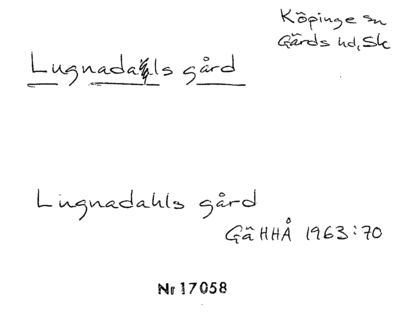 Köpinge sn
Gärds hd, Sk
Lugnadals gård
Lugnadahls gård
GäHHÅ 1963:70
Nr 17058